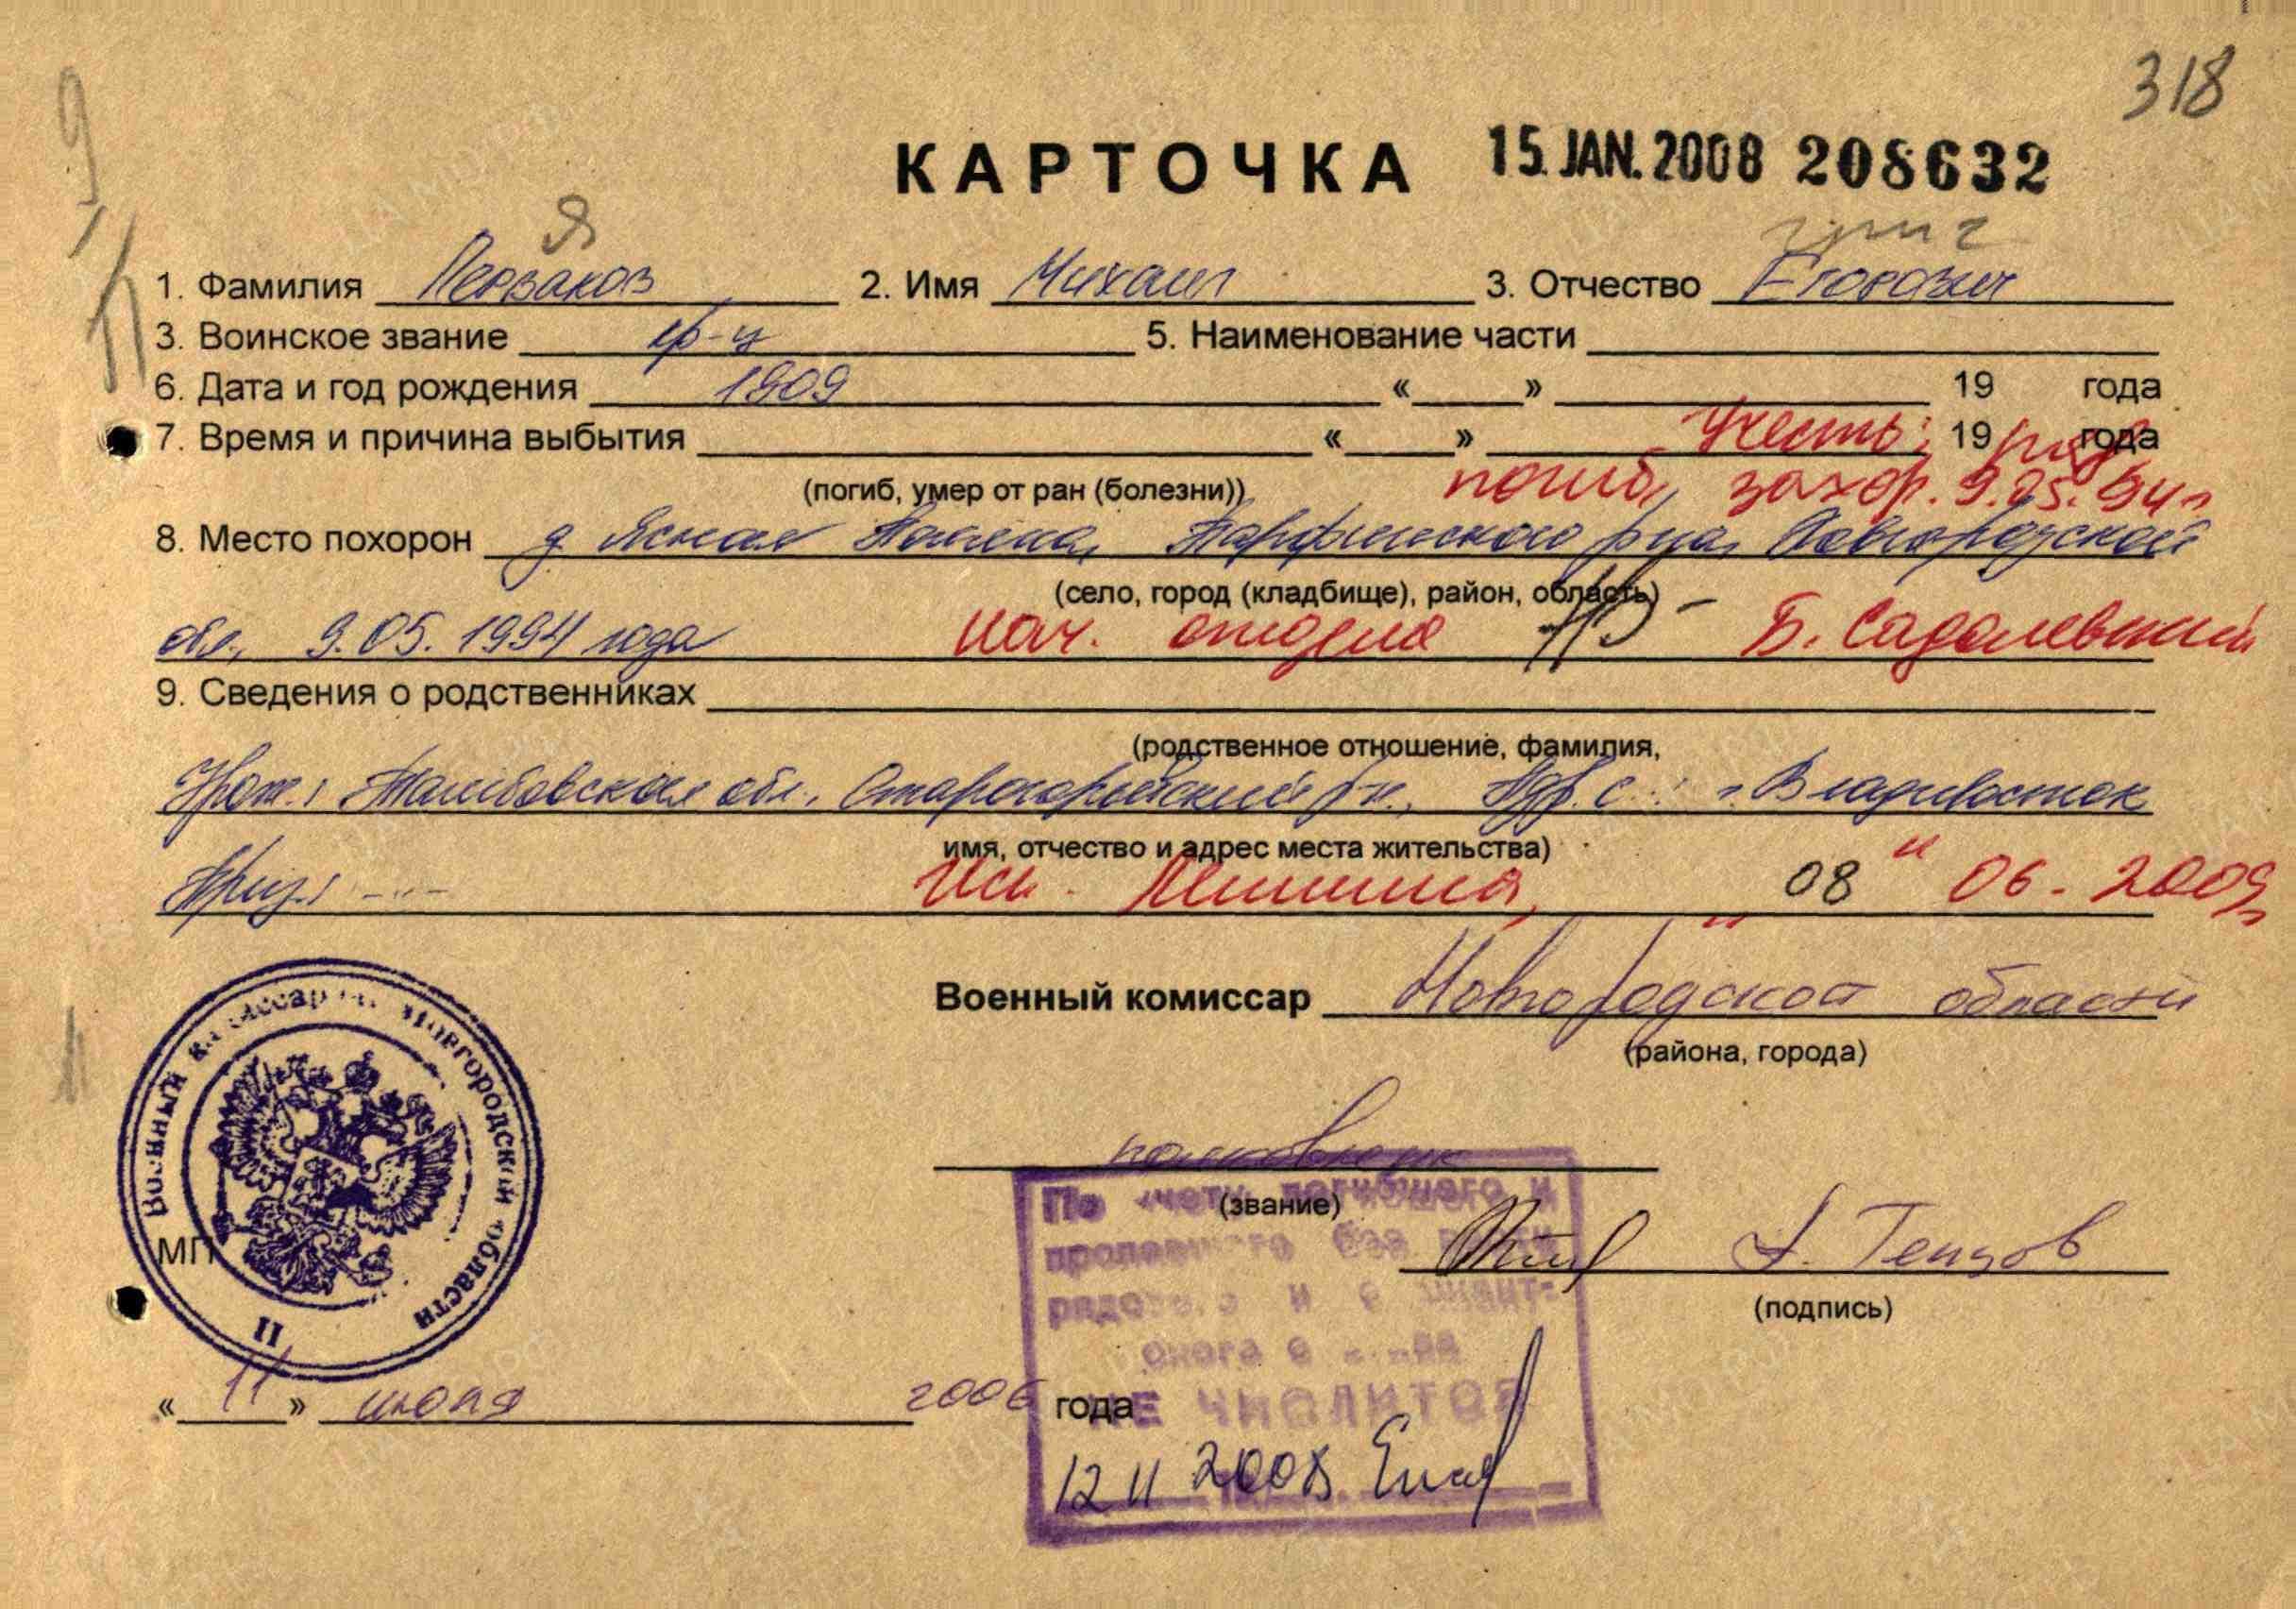 318
КАРТОЧКА 15 JAN. 2008 208632
Я
григ
1. Фамилия Перваков 2. Имя Михаил 3. Отчество Егорович
3. Воинское звание кр-ц 5. Наименование части
6. Дата и год рождения 1909 « » 19 года
7. Время и причина выбытия « » 19 года
Учесть: ряд.
(погиб, умер от ран (болезни)) погиб, захор. 9.05.94г
8. Место похорон д. Ясная Поляна, Парфинского р-на, Новгородской
(село, город (кладбище), район, область)
обл., 9.05.1994 года нач. отдела Б. Садолевский
9. Сведения о родственниках
(родственное отношение, фамилия,
Урож.: Тамбовская обл., Староюрьевский р-н., Адр. с: г. Владивосток
имя, отчество и адрес места жительства)
Приз.: -"- Исп. "08" 06-2009г
Военный комиссар Новгородской области
(района, города)
полковник
(звание)
По учету погибшего и
пропавшего без вести
рядового и сержант-
ского состава
НЕ ЧИСЛИТСЯ
12 11 2008
А. Тенцов
(подпись)
МП
Военный комиссариат Новгородской области
11
« 11 » июля 2006 года